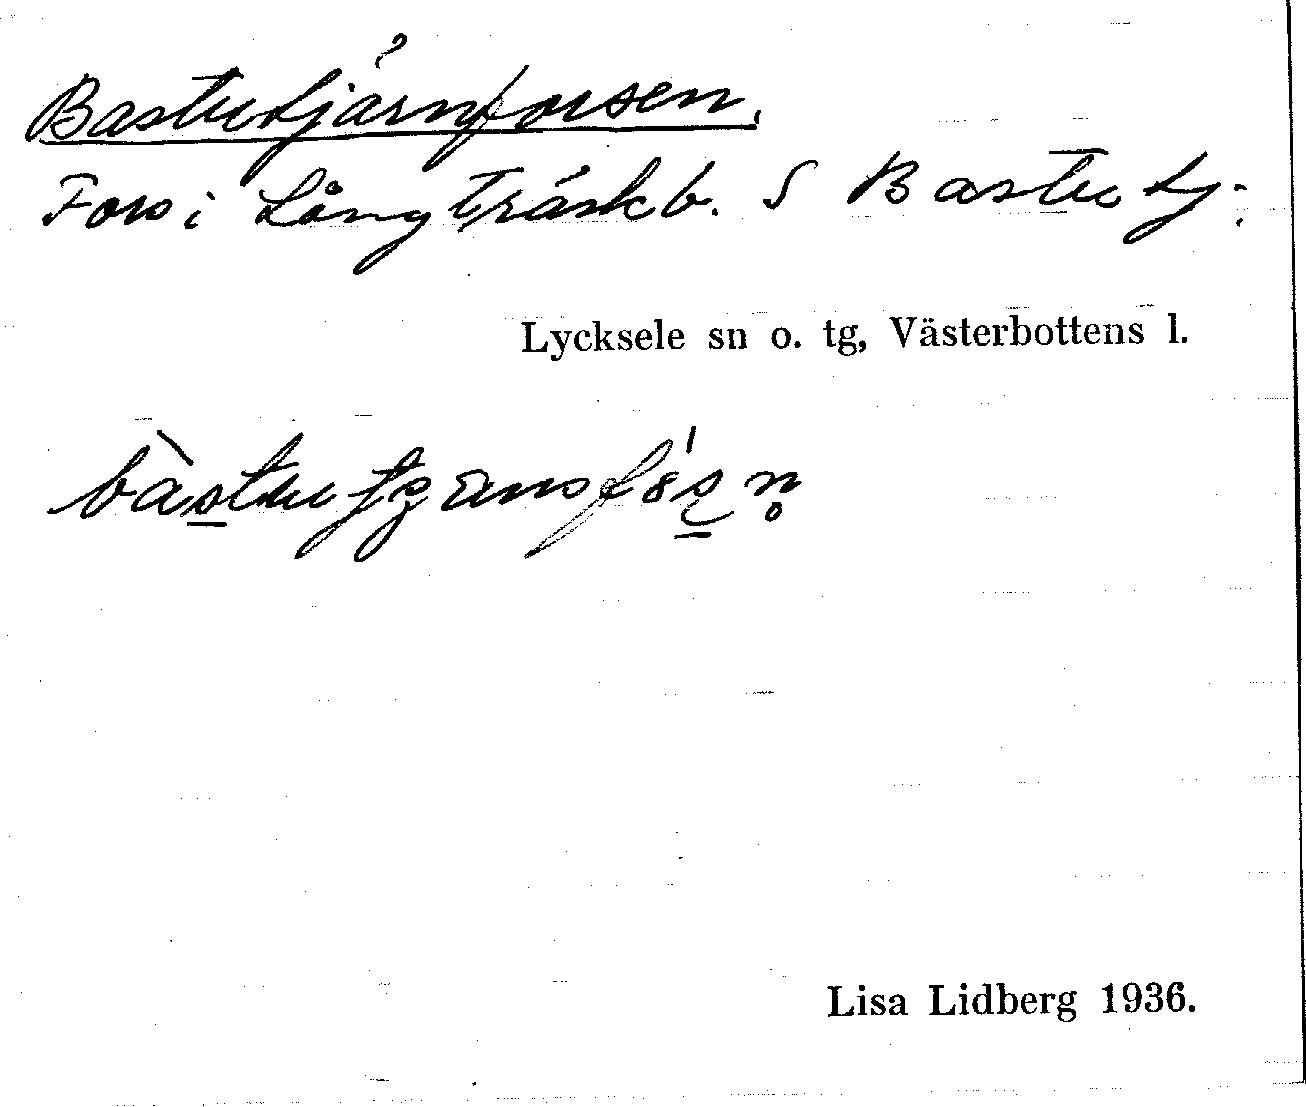 Bastutjärnforsen.
Fors i Långträskb. S Bastutj.
Lycksele sn o. tg, Västerbottens l.
Lisa Lidberg 1936.